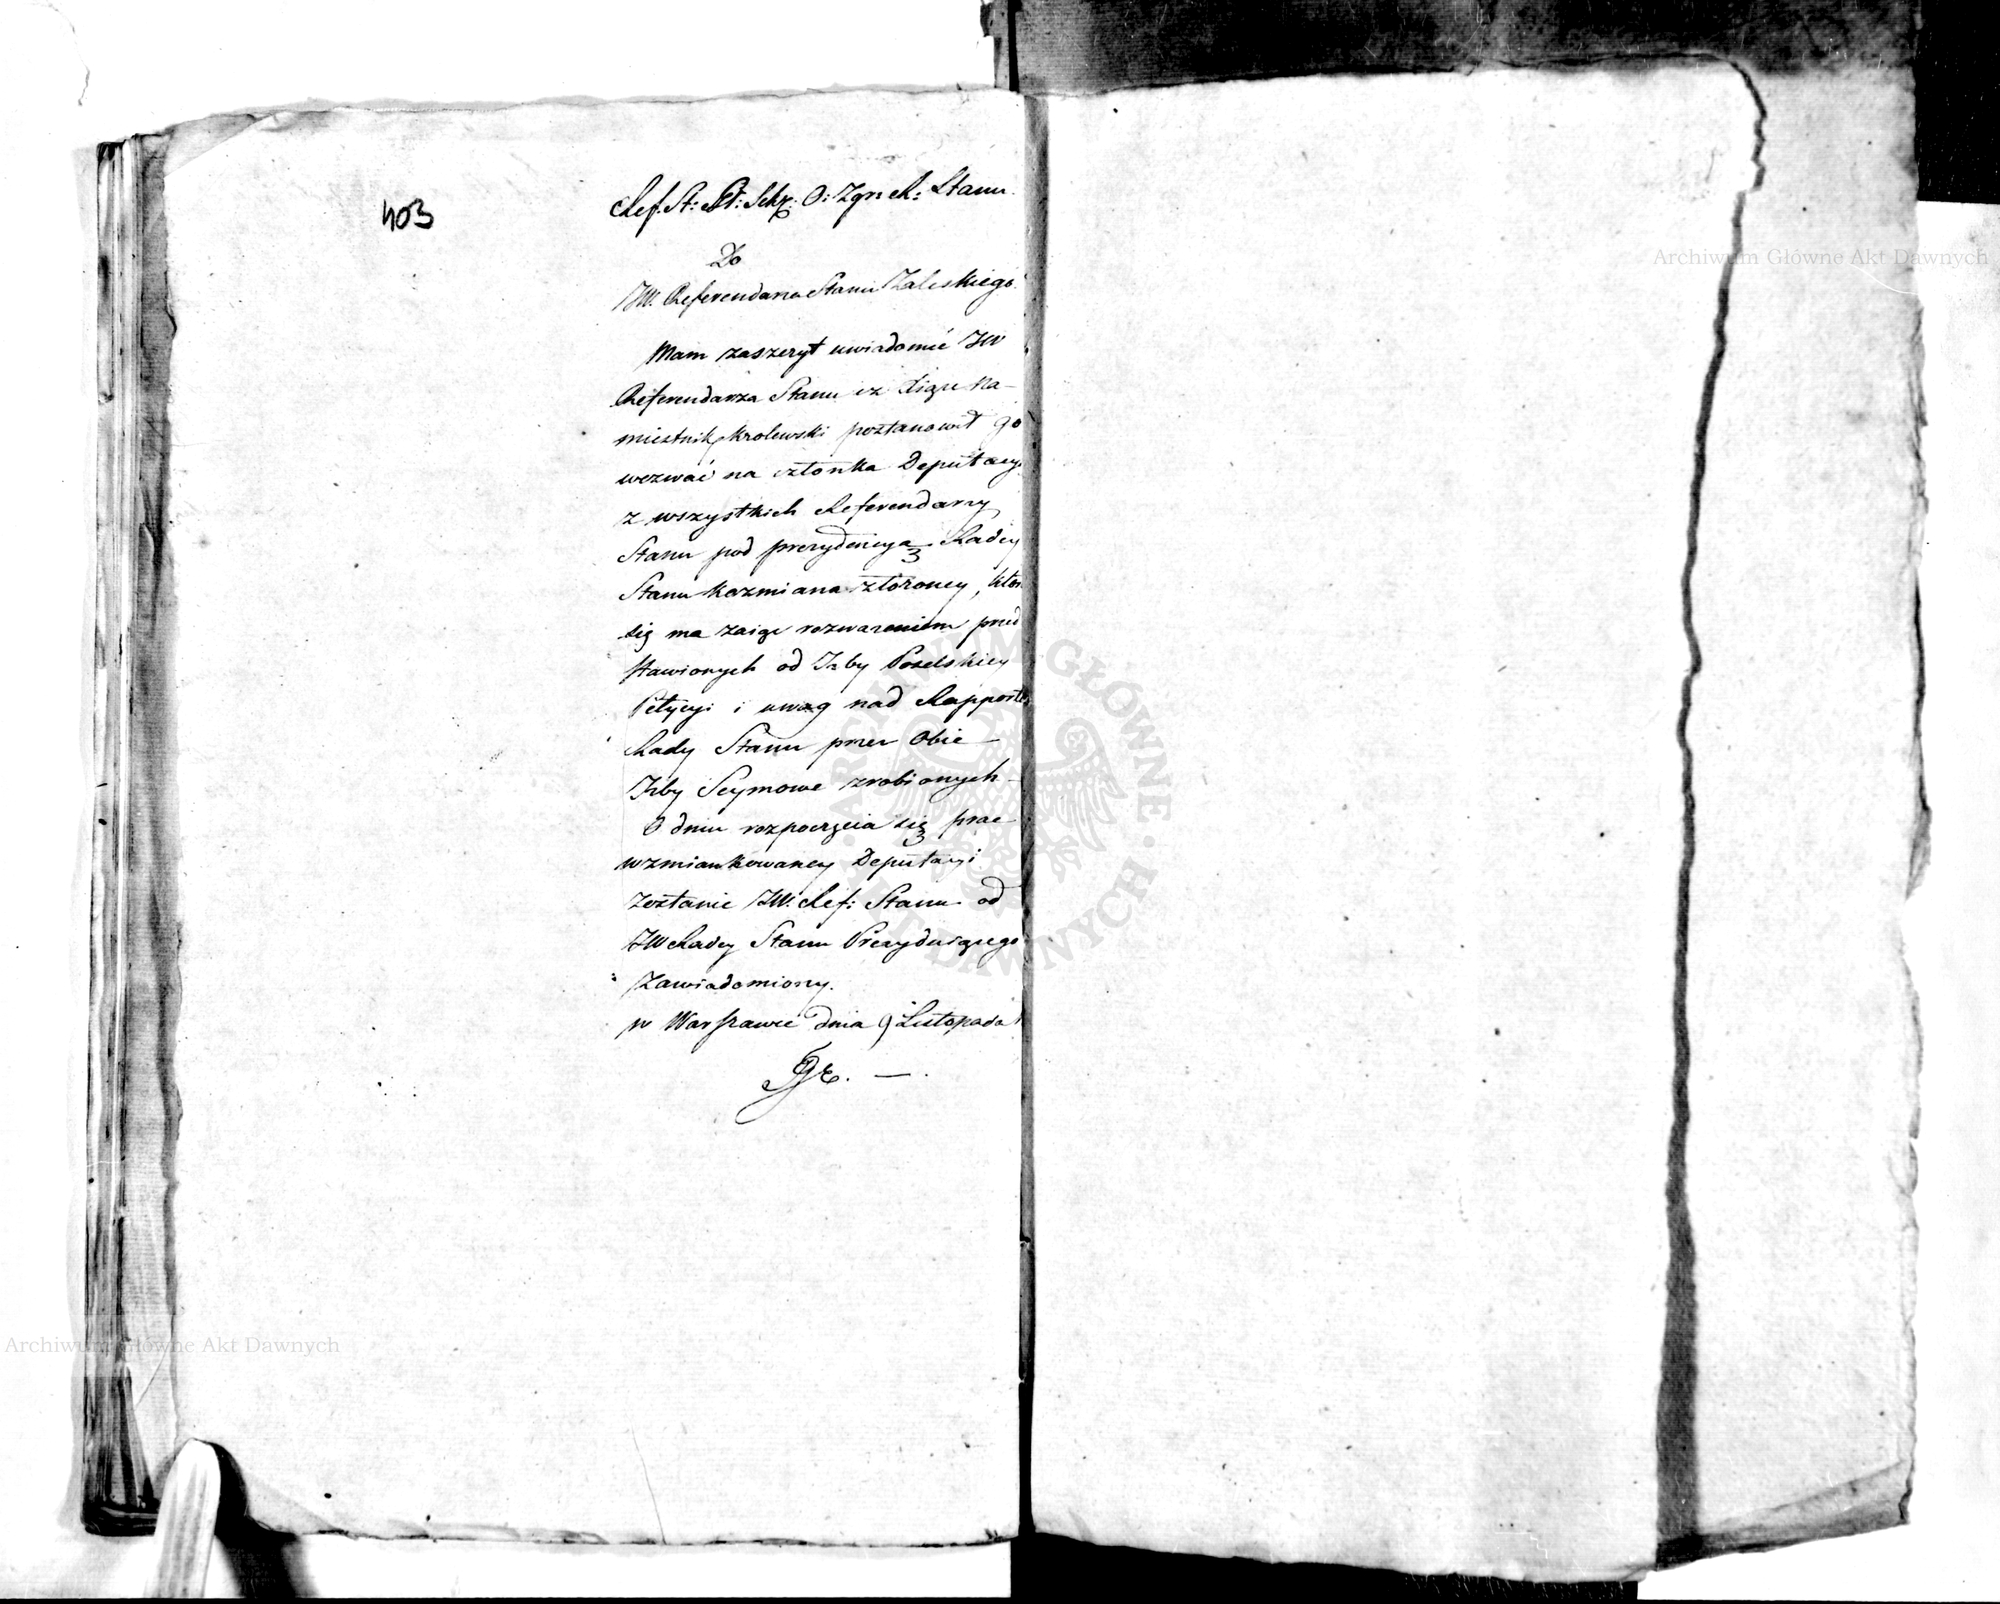 403
Ref. St: St: Sekr: O: Zgr: R: Stanu.
Do
JW. Referendarza Stanu Zaleskiego.
Mam zaszczyt uwiadomić JW
Referendarza Stanu iż Xiąże Na-
miestnik Krolewski postanowił go
wezwać na członka Deputacyi
z wszystkich Referendarzy
Stanu pod prezydencyą Radcy
Stanu Kozmiana złożoney, która
się ma zaiąć rozważeniem przed
stawionych od Izby Poselskiey
Petycyi i uwag nad Rapportem
Rady Stanu przez Obie
Izby Seymowe zrobionych
O dniu rozpoczęcia się prac
wzmiankowaney Deputacyi
zostanie JW. Ref: Stanu od
JW Radcy Stanu Prezyduiącego
zawiadomiony.
w Warszawie dnia 9 Listopada
Archiwum Główne Akt Dawnych
Archiwum Główne Akt Dawnych
ARCHIWUM GŁÓWNE AKT DAWNYCH